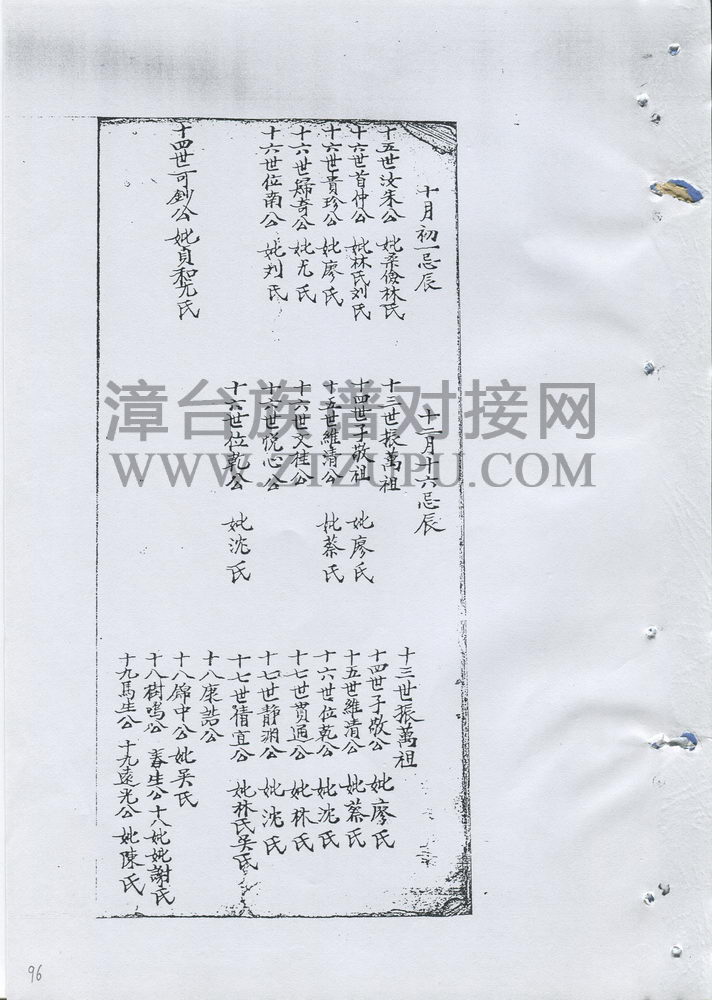 十月初一忌辰
十五世汝朱公 妣柔儉林氏
十六世首仲公 妣林氏刘氏
十六世貴珍公 妣廖氏
十六世歸奇公 妣尤氏
十六世位南公 妣刘氏
十四世可釗公 妣貞和尤氏
十二月十六忌辰
十三世振萬祖
十四世子敬祖 妣廖氏
十五世維清公 妣蔡氏
十六世文桂公
十六世悅心公
十六世位乾公 妣沈氏
十三世振萬祖
十四世子敬公 妣廖氏
十五世維清公 妣蔡氏
十六世位乾公 妣沈氏
十七世貫通公 妣林氏
十七世静淵公 妣沈氏
十七世情宜公 妣林氏吳氏
十八康誥公
十八錦中公 妣吳氏
十八樹鳴公 春生公 十八妣妣謝氏
十九馬生公 十九遠光公 妣陳氏
漳台族谱对接网
WWW.ZTZUPU.COM
96